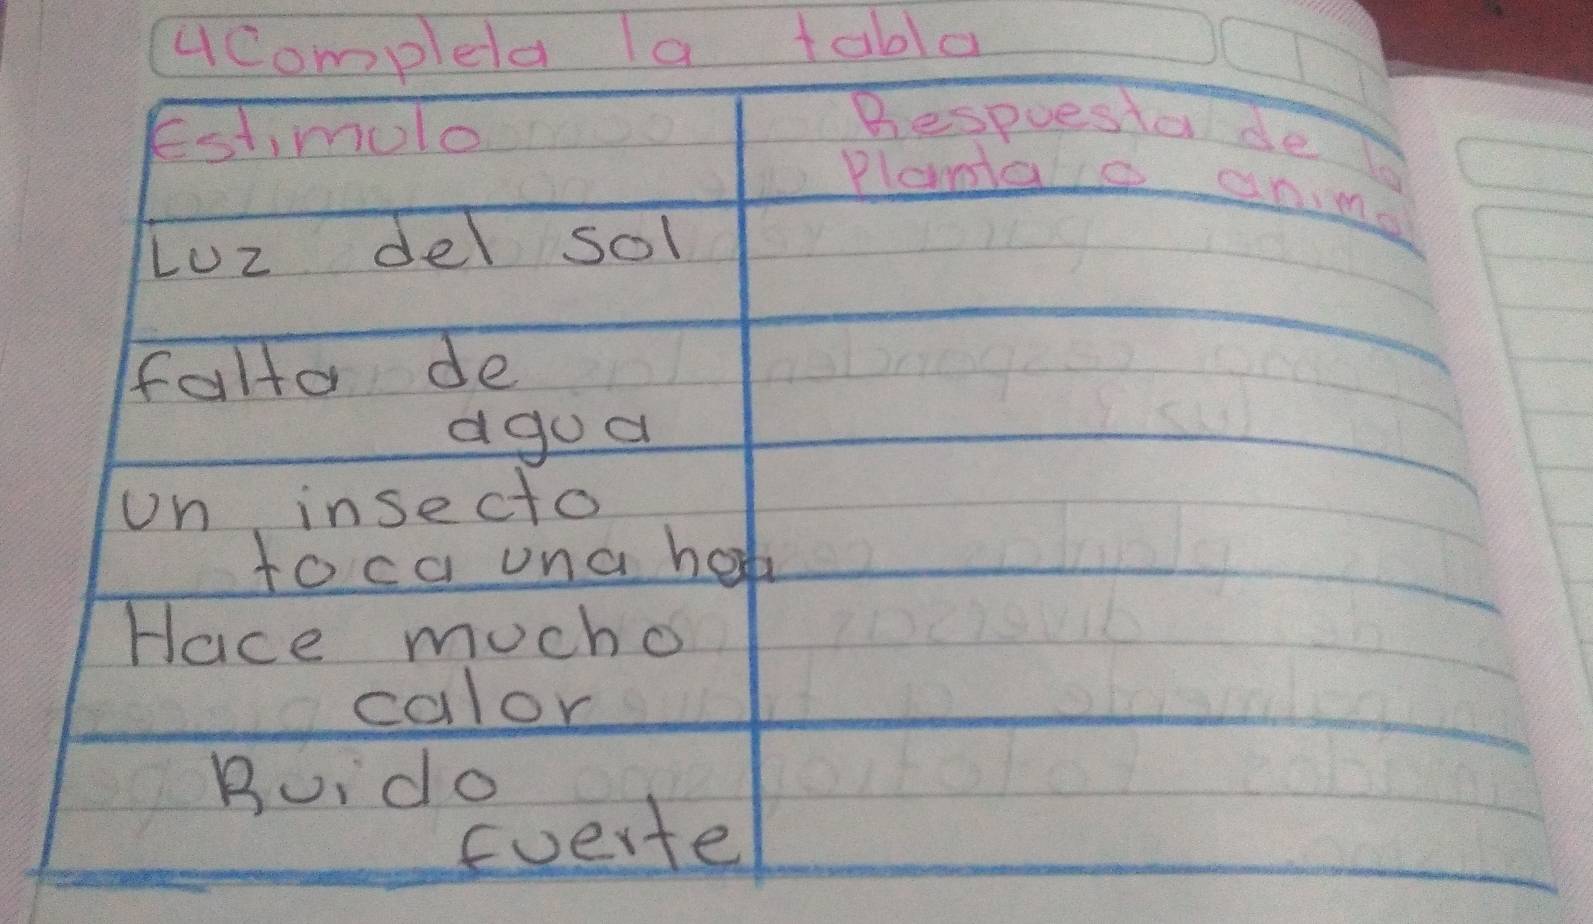 4 Completa la tabla
Estimulo
Respuesta de la
Planta o anima
Luz del sol
falta de
agua
un insecto
toca una hoja
Hace mucho
calor
Ruido
fuerte